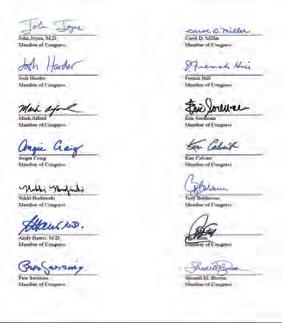 John Joyce, M.D.
Member of Congress
Carol D. Miller
Carol D. Miller
Member of Congress
Josh Harder
Josh Harder
Member of Congress
French Hill
French Hill
Member of Congress
Mark Alford
Mark Alford
Member of Congress
Eric Sorensen
Eric Sorensen
Member of Congress
Angie Craig
Angie Craig
Member of Congress
Ken Calvert
Ken Calvert
Member of Congress
Nikki Budzinski
Nikki Budzinski
Member of Congress
Troy Balderson
Member of Congress
Andy Harris, M.D.
Member of Congress
Member of Congress
Pete Sessions
Pete Sessions
Member of Congress
Shontel M. Brown
Member of Congress